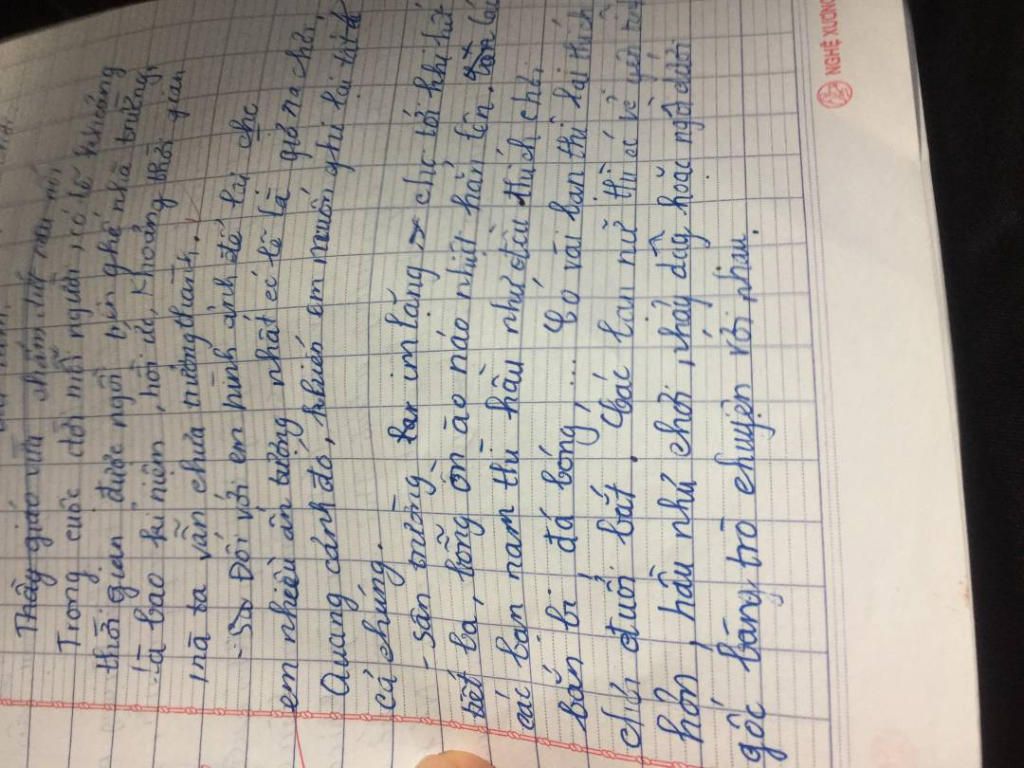 Thầy giáo vừa chấm
Trong cuộc đời mỗi người, có lẽ khoảng
thời gian được ngồi trên ghế nhà trường,
là bao kỉ niệm, hồi ức, khoảng thời gian
mà ta vẫn chưa trưởng thành.
- Đối với em hình ảnh để lại cho
em nhiều ấn tượng nhất có lẽ là giờ ra chơi.
Quang cảnh đó, khiến em muốn ghi lại tất
cả chúng.
- Sân trường im lặng cho tới khi hết
tiết ba, bỗng ồn ào náo nhiệt hẳn lên.
các bạn nam thì hầu như đều thích chơi
bắn bi, đá bóng,... Có vài bạn thì lại thích
chơi đuổi bắt. Các bạn nữ thì có vẻ yên
hơn, hầu như chơi nhảy dây hoặc ngồi dưới
gốc bàng trò chuyện với nhau.
NGHỆ XƯƠNG